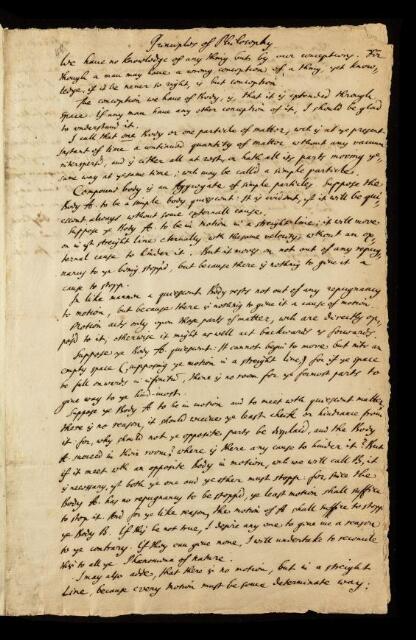 Principles of Philosophy
We have no knowledge of any thing but by our conceptions. For
though a man may have a wrong conception of a thing, yet know,
ledge, if it be never so right, is but conception.
The conception we have of Body, is, that it is extended through
space. If any man have any other conception of it, I should be glad
to understand it.
I call that one Body or one particle of matter, wch is at ye present
instant of time a continued quantity of matter without any vacuum
interspers'd, and is either all at rest, or hath all its parts moving ye
same way at ye same time; & may be called a simple particle.
Compound body is an Aggregate of simple particles. Suppose the
Body A. to be a simple body quiescent. It is evident, yt it will be qui,
escent always without some externall cause.
Suppose ye Body A. to be in motion in a streight line; it will move
on in yt streight line eternally, wth the same velocity, without an ex,
ternal cause to hinder it. But it moves on not out of any repug,
nancy to ye being stopp'd, but because there is nothing to give it a
cause to stopp.
In like manner a quiescent Body rests not out of any repugnancy
to motion, but because there is nothing to give it a cause of motion.
Motion acts only upon those parts of matter, wch are directly op,
pos'd to it, otherwise it might as well act backwards as forwards.
Suppose ye Body A. quiescent. It cannot begin to move but into an
empty space (supposing ye motion in a streight line) for if ye space
be full onwards in infinitum, there is no room for ye formost parts to
give way to ye hind-most.
Suppose ye Body A to be in motion and to meet with quiescent matter,
there is no reason, it should receive ye least check or hindrance from
it. for, why should not ye opposite, parts be displac'd, and the Body
A mooved in their room? where is there any cause to hinder it? But
if it meet wth an opposite body in motion, wch we will call B, it
is necessary, yt both ye one and ye other must stopp. for, since the
body A. has no repugnancy to be stopp'd, ye least motion shall suffice
to stop it. And for ye like reason, the motion of A shall suffice to stopp
ye Body B. If this be not true, I desire any one to give me a reason
to ye contrary. If they can give none, I will undertake to reconcile
this to all ye Phænomena of nature.
I may also adde, that there is no motion, but in a streight
Line, because every motion must be some determinate way.